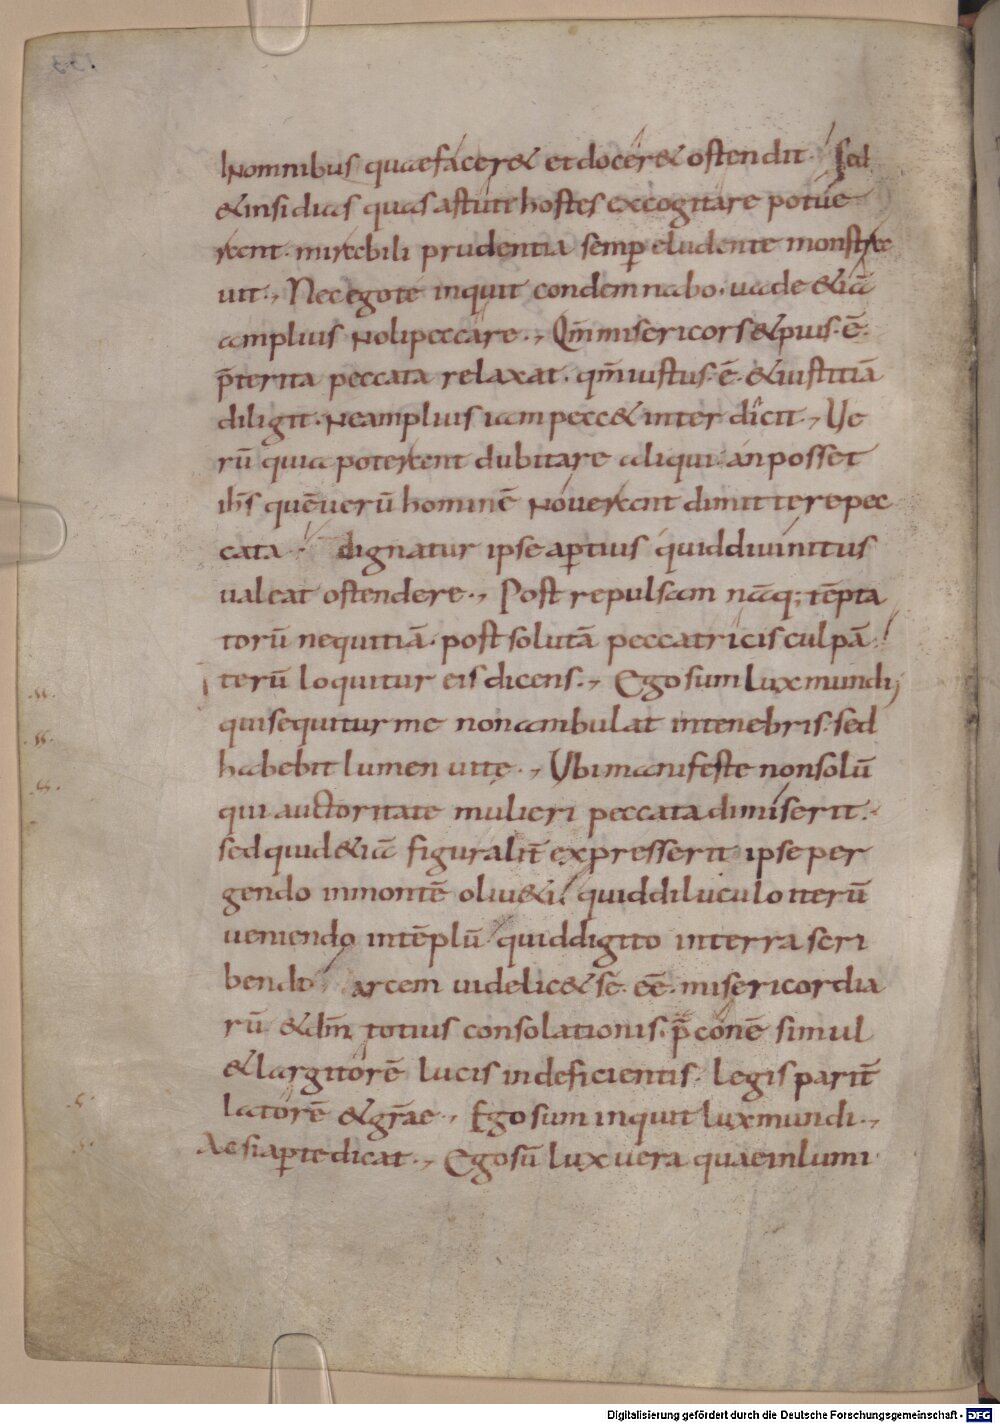 INomnibus quaefacer& etdocer& ostendit. sed
&insidias quas astute hostes excogitare potue
rant. mirabili prudentia semp eludente monstra
uit., Nec egote inquit condemnabo. uade &iā
amplius Nolipeccare., Qm̄misericors&pius. ē.
p̄terita peccata relaxat. qm̄iustus. ē. &iustitiā
diligit. Neamplius iam pecc& inter dicit., Ue
rū quia poterant dubitare aliqui. an posset
ihs̄ quēuerū hominē Nouerant dimittere pec
cata. dignatur ipse aptius quid diuinitus
ualeat ostendere., Post repulsam nāq; tēpta
torū nequitiā. post solutā peccatricis culpā.
iterū loquitur eis dicens., Ego sum lux mundi
qui sequitur me non ambulat intenebris. sed
habebit lumen uitę., Ubi manifeste non solū
qui auctoritate mulieri peccata dimiserit.
sed quid &iā figuralit̄ expresserit ipse per
gendo inmontē oliu&i. quid diluculo iterū
ueniendo intēplū quid digito interra scri
bendo arcem uidelic& sē. eē. misericordia
rū &dm̄ totius consolationis. p̄conē simul
&largitorē lucis indeficientis. legis parit̄
latorē &gr̄ae., Ego sum inquit lux mundi.,
Ac si apte dicat., Ego sū lux uera quaeinlumi
Digitalisierung gefördert durch die Deutsche Forschungsgemeinschaft - DFG